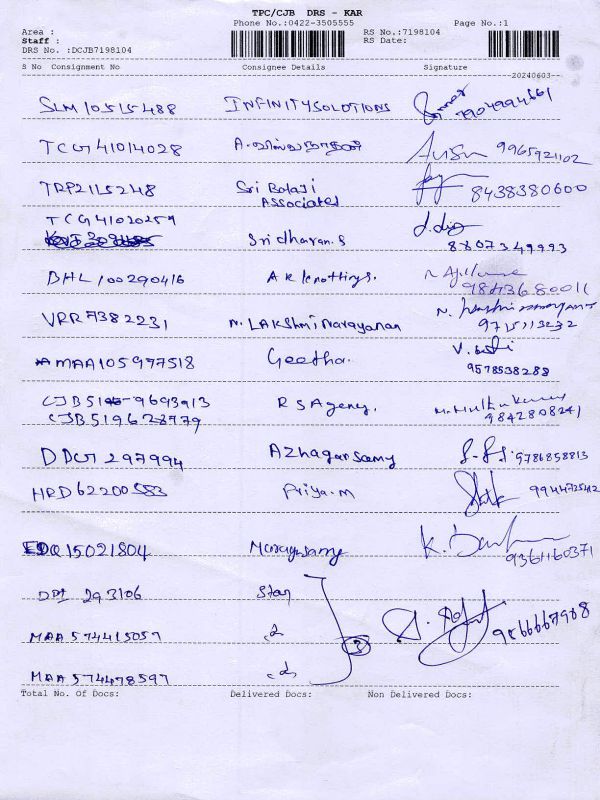 TPC/CJB DRS - KAR
Phone No.:0422-3505555 Page No.:1
Area : RS No.:7198104
Staff : RS Date:
DRS No. :DCJB7198104
S No Consignment No Consignee Details Signature
20240603
SLM 10515488 INFINITY SOLUTIONS 7904994561
TCG 41014028 A. விஸ்வநாதன் 9965921102
TRP2115248 Sri Balaji Associates 8438380600
TCG41020259
Sridharan.S 8807349993
BHL 100290416 9843680011
VRR7382231 N. LAKshmi Narayanan 9715113232
MAA105977518 Geetha. 9578538288
CJB51 9693913 R S Agency. 9842808241
CJB519628779
DDG 297994 Azhagarsamy 9786858813
HRD62200583 Priya.M 9944735412
EDQ15021804 9361160371
DPI 293106 Star
MAA 574415057 3 9566667908
MAA 574478597
Total No. Of Docs: Delivered Docs: Non Delivered Docs: